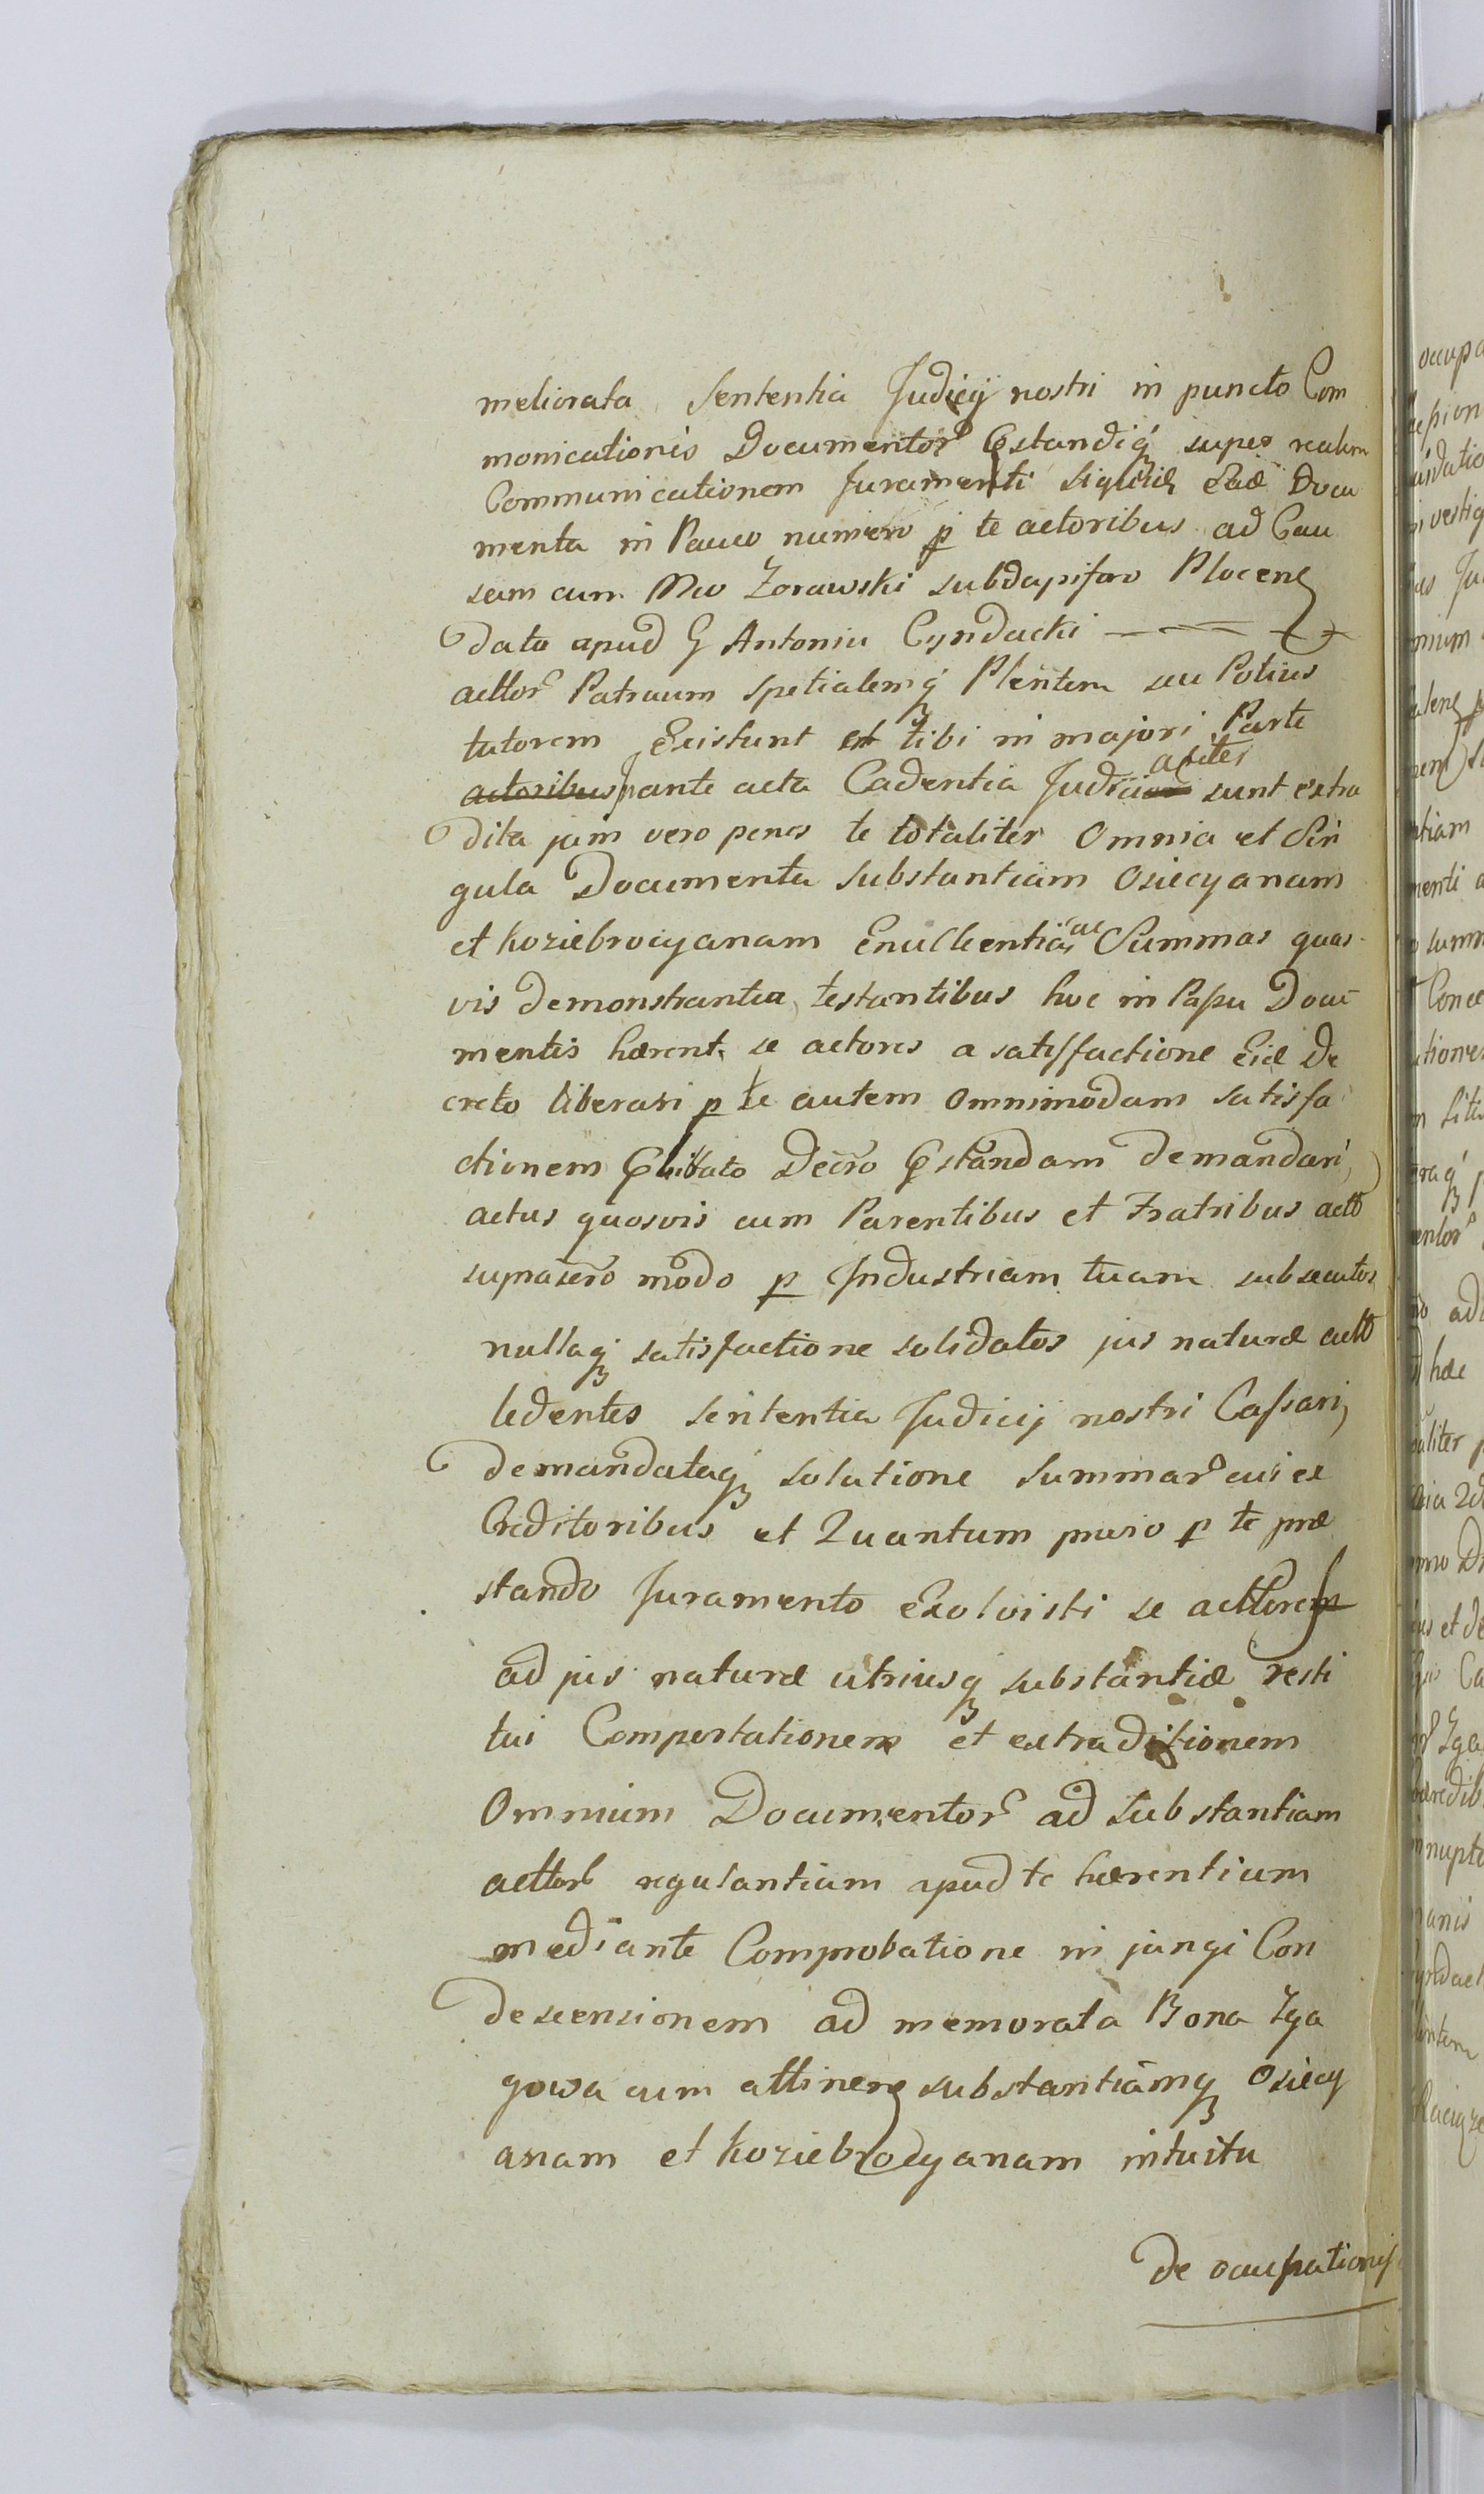 meliorata Sententia Judicij nostri in puncto Com
monicationis Documentor Pstandiq super realem
Communicationem Juramenti siquide Ead Docu
menta in Pauco numero p te actoribus ad Cau
sam cum Mco Zorawski subdapifero Plocens
dato apud G Antoniu Cyndacki
acttor Patruum spetialemq Plentem seu Potius
tutorem Existunt et tibi in majori Parte
actoribus ante acta Cadentia Judicia sunt extra
dita jam vero penes te totaliter Omnia et Sin
gula Documenta substantiam Osiecyanam
et Koziebrocyanam Enucleentia ac Summas quas
vis demonstrantia, testantibus hoc in Passu Docu
mentis hærent, se actores a satisfactione Eid De
creto liberari p te autem omnimodam satisfa
ctionem Decro Pstandam demandari,
actus quosvis cum Parentibus et Fratribus actto
modo p Industriam tuam subsecutos
nullaq satisfactione solidatos jus naturæ actto
ledentes sententia Judicij nostri Cassari,
demandataq solutione summar cui ex
Creditoribus et Quantum prævio p te præ
stando Juramento exolvisti se acttorem
ad jus naturæ utriusq substantiæ resti
tui Comportationem et extraditionem
Omnium Documentor ad substantiam
acttor regulantium apud te hærentium
mediante Comprobatione in jungi Con
descensionem ad memorata Bona Zga
gowa cum attinens substantiamq Osiecy
anam et Koziebrocyanam intuitu
de occupationis